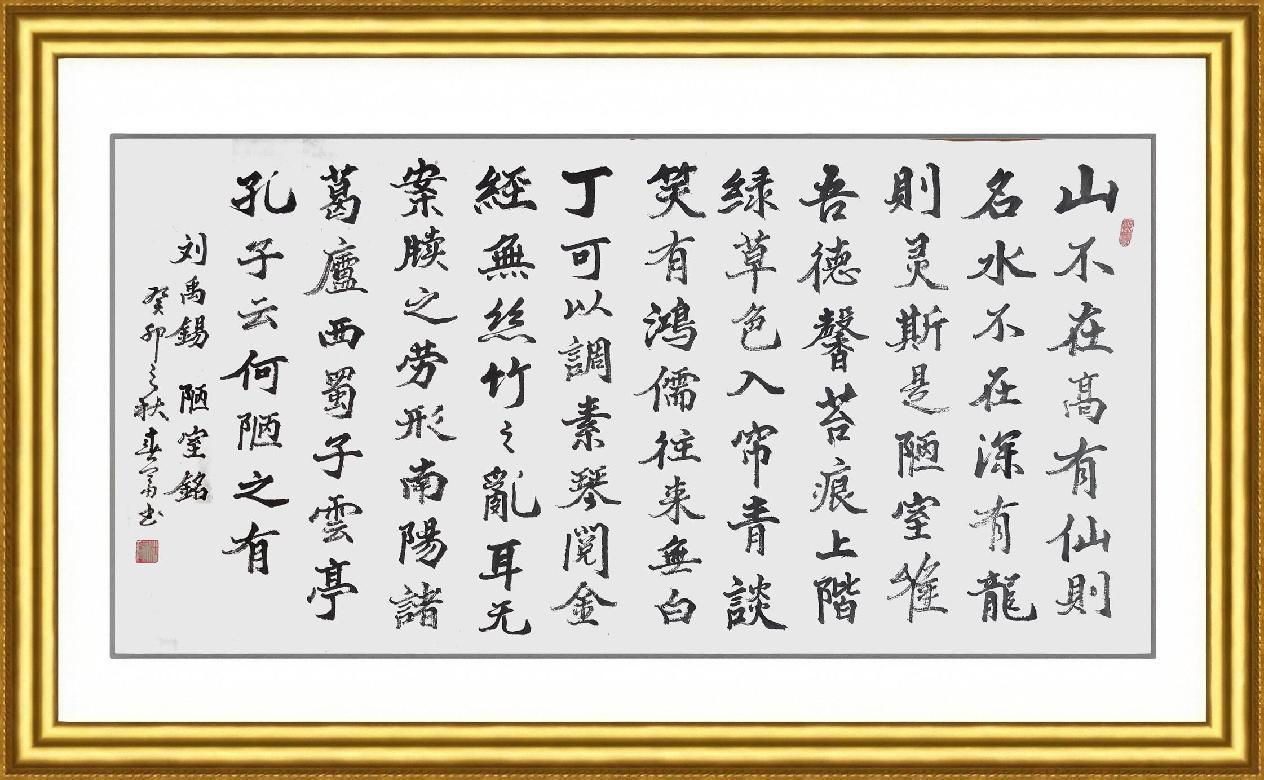 山不在高有仙則
名水不在深有龍
則灵斯是陋室惟
吾德馨苔痕上階
绿草色入帘青談
笑有鴻儒往来無白
丁可以調素琴閱金
經無絲竹之亂耳无
案牍之劳形南陽諸
葛廬西蜀子雲亭
孔子云何陋之有
刘禹錫 陋室銘
癸卯之秋春富书